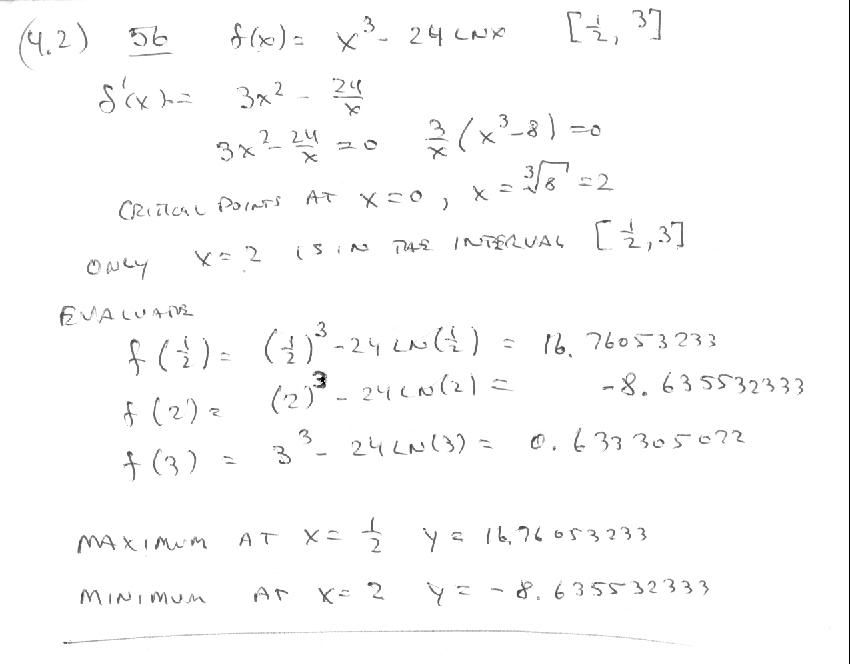 (4.2) 56 f(x) = x³ - 24 LNX [1/2, 3]
f'(x) = 3x² - 24/x
3x² - 24/x = 0 3/x (x³-8) = 0
CRITICAL POINTS AT x=0, x = ∛8 = 2
ONLY x=2 IS IN THE INTERVAL [1/2, 3]
EVALUATE
f(1/2) = (1/2)³ - 24 LN(1/2) = 16.76053233
f(2) = (2)³ - 24 LN(2) = -8.635532333
f(3) = 3³ - 24 LN(3) = 0.633305072
MAXIMUM AT X = 1/2 y = 16.76053233
MINIMUM AT X = 2 y = -8.635532333